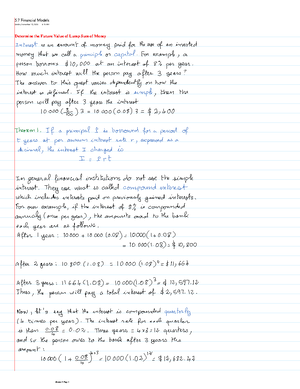 5.7 Financial Models
Determine the Future Value of Lump Sum of Money
Interest is an amount of money paid for the use of an invested
money that we call a principle or capital. For example, a
person borrows $10,000 at an interest of 8% per year.
How much interest will the person pay after 3 years?
The answer to this question depends on how the
interest is defined. If the interest is simple, then the
person will pay after 3 years the interest
10000 (8/100) 3 = 10000 (0.08) 3 = $2,400
Theorem 1. If a principal P is borrowed for a period of
t years at per annum interest rate r, expressed as a
decimal, the interest I charged is
I = P r t
In general financial institutions do not use the simple
interest. They use what is called compound interest
which includes interest paid on previously gained interests.
For our example, if the interest of 8% is compounded
annually (once per year), the amounts owed to the bank
each year are as follows.
After 1 year: 10000 + 10000 (0.08) = 10000 (1+0.08)
= 10000 (1.08) = $10,800
After 2 years: 10800 (1.08) = 10000 (1.08)² = $11,664
After 3 years: 11664 (1.08) = 10000 (1.08)³ = $12,597.12
Thus, the person will pay a total interest of $2,597.12.
Now, let's say that the interest is compounded quarterly
(4 times per year). The interest rate for each quarter
is then 0.08/4 = 0.02. Three years = 4×3 = 12 quarters,
and so the person owes to the bank after 3 years the
amount:
10000 (1 + 0.08/4)^4×3 = 10000 (1.02)^12 = $12,682.42